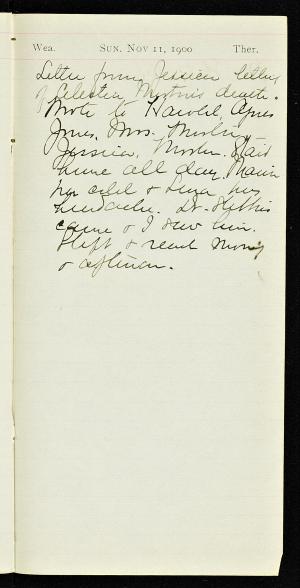 Wea. SUN. NOV 11, 1900 Ther.
Letter from Jessica telling
of Celestia death.
Wrote to Harold, Agnes
Jones, Mrs.
Jessica, Mosher. Staid
home all day,
has cold & has
headache. Dr.
came & I saw him.
Slept & read morning
& afternoon.